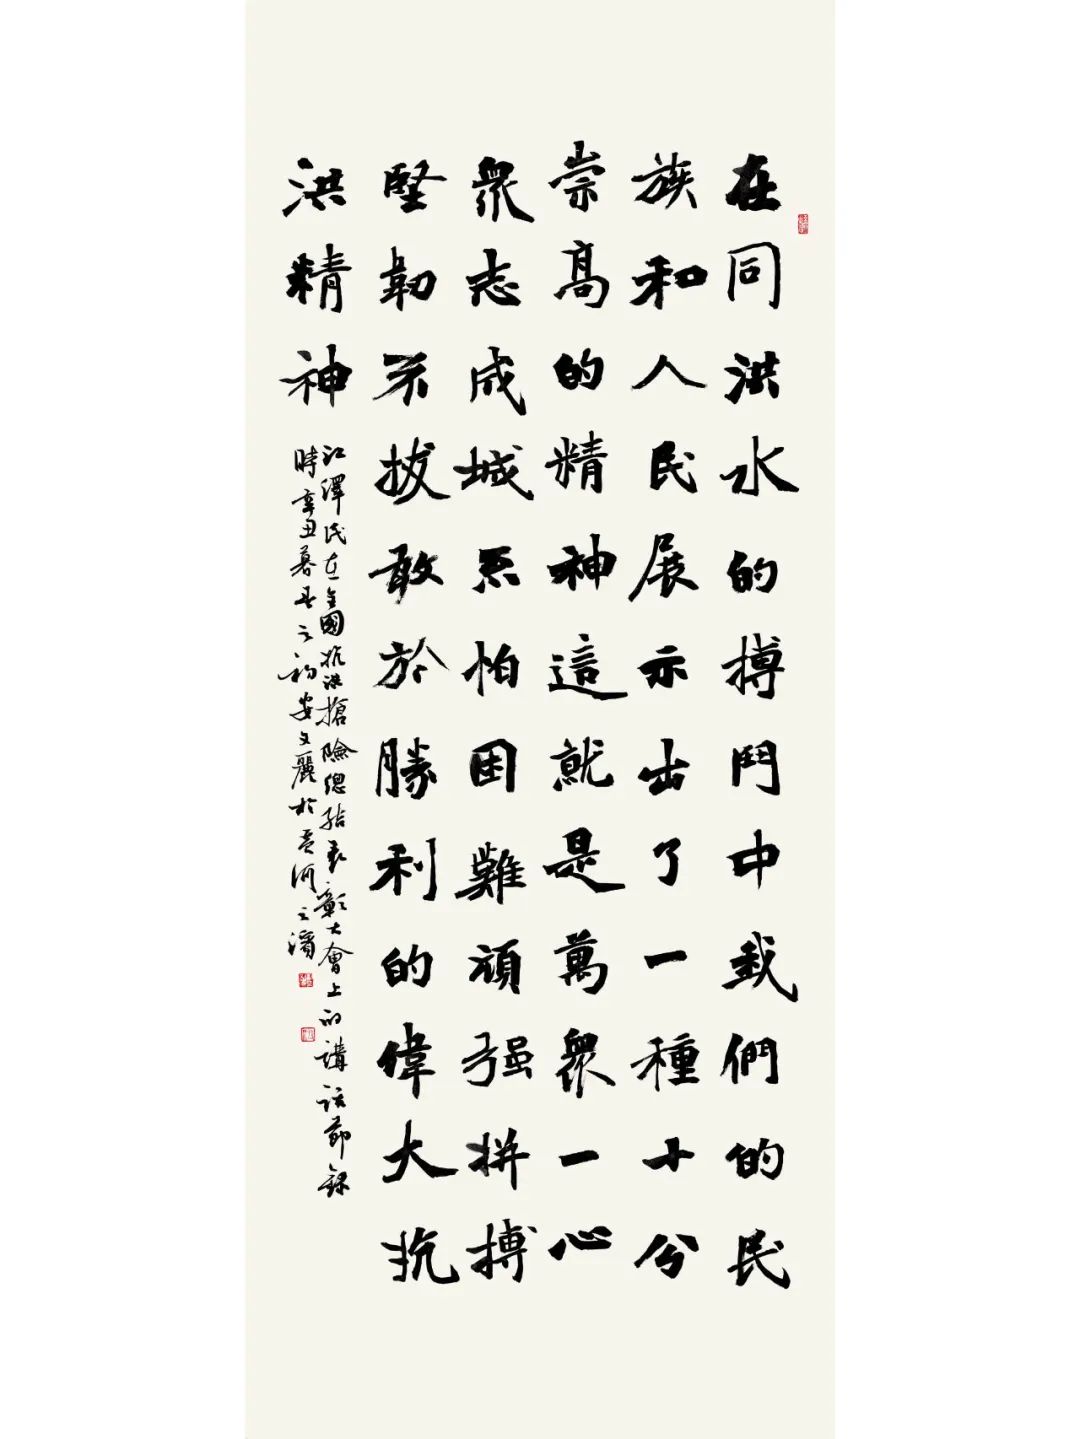 在同洪水的搏鬥中我們的民
族和人民展示出了一種十分
崇高的精神這就是萬衆一心
衆志成城不怕困難頑强拼搏
堅韌不拔敢於勝利的偉大抗
洪精神
江澤民在全國抗洪搶險總結表彰大會上的講話節錄
時辛丑暮春之初安文麗於晉河之濱